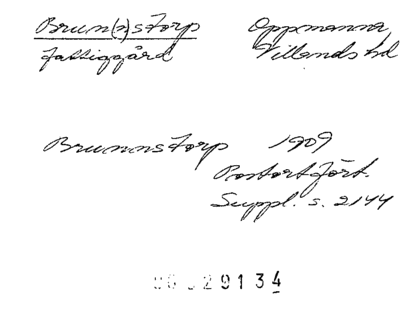 Brun(n)storp Oppmanna
fattiggård Villands hd
Brunnstorp 1909
Postortfört.
Suppl. s. 2144
29134